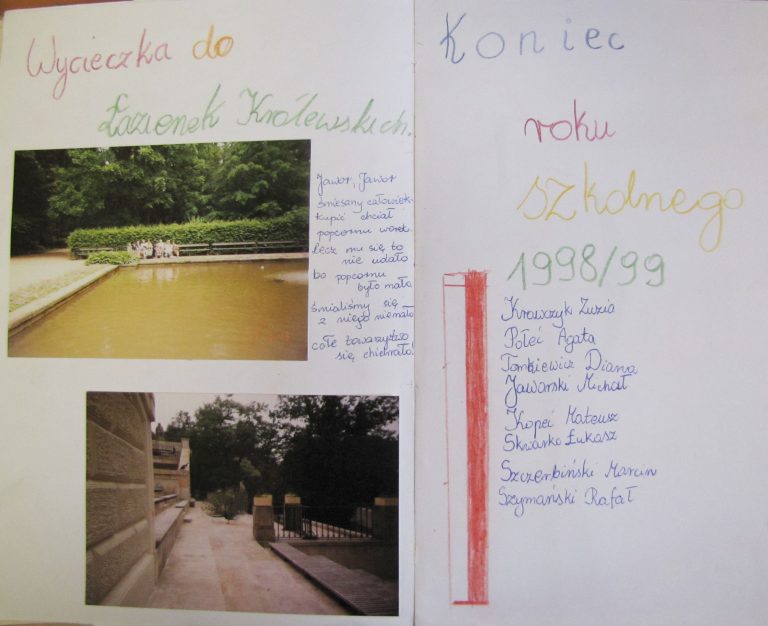 Wycieczka do
Łazienek Królewskich.
Jawor, Jawor
śmieszny całowiek
kupić chciał
popcornu worek
lecz mu się to
nie udało
bo popcornu
było mało
śmialiśmy się
z niego niemało
całe towarzystwo
się chichrało!
Koniec
roku
szkolnego
1998/99
Krawczyk Zuzia
Połeć Agata
Tomkiewicz Diana
Jaworski Michał
Kopeć Mateusz
Skwarko Łukasz
Szczembiński Marcin
Szymański Rafał